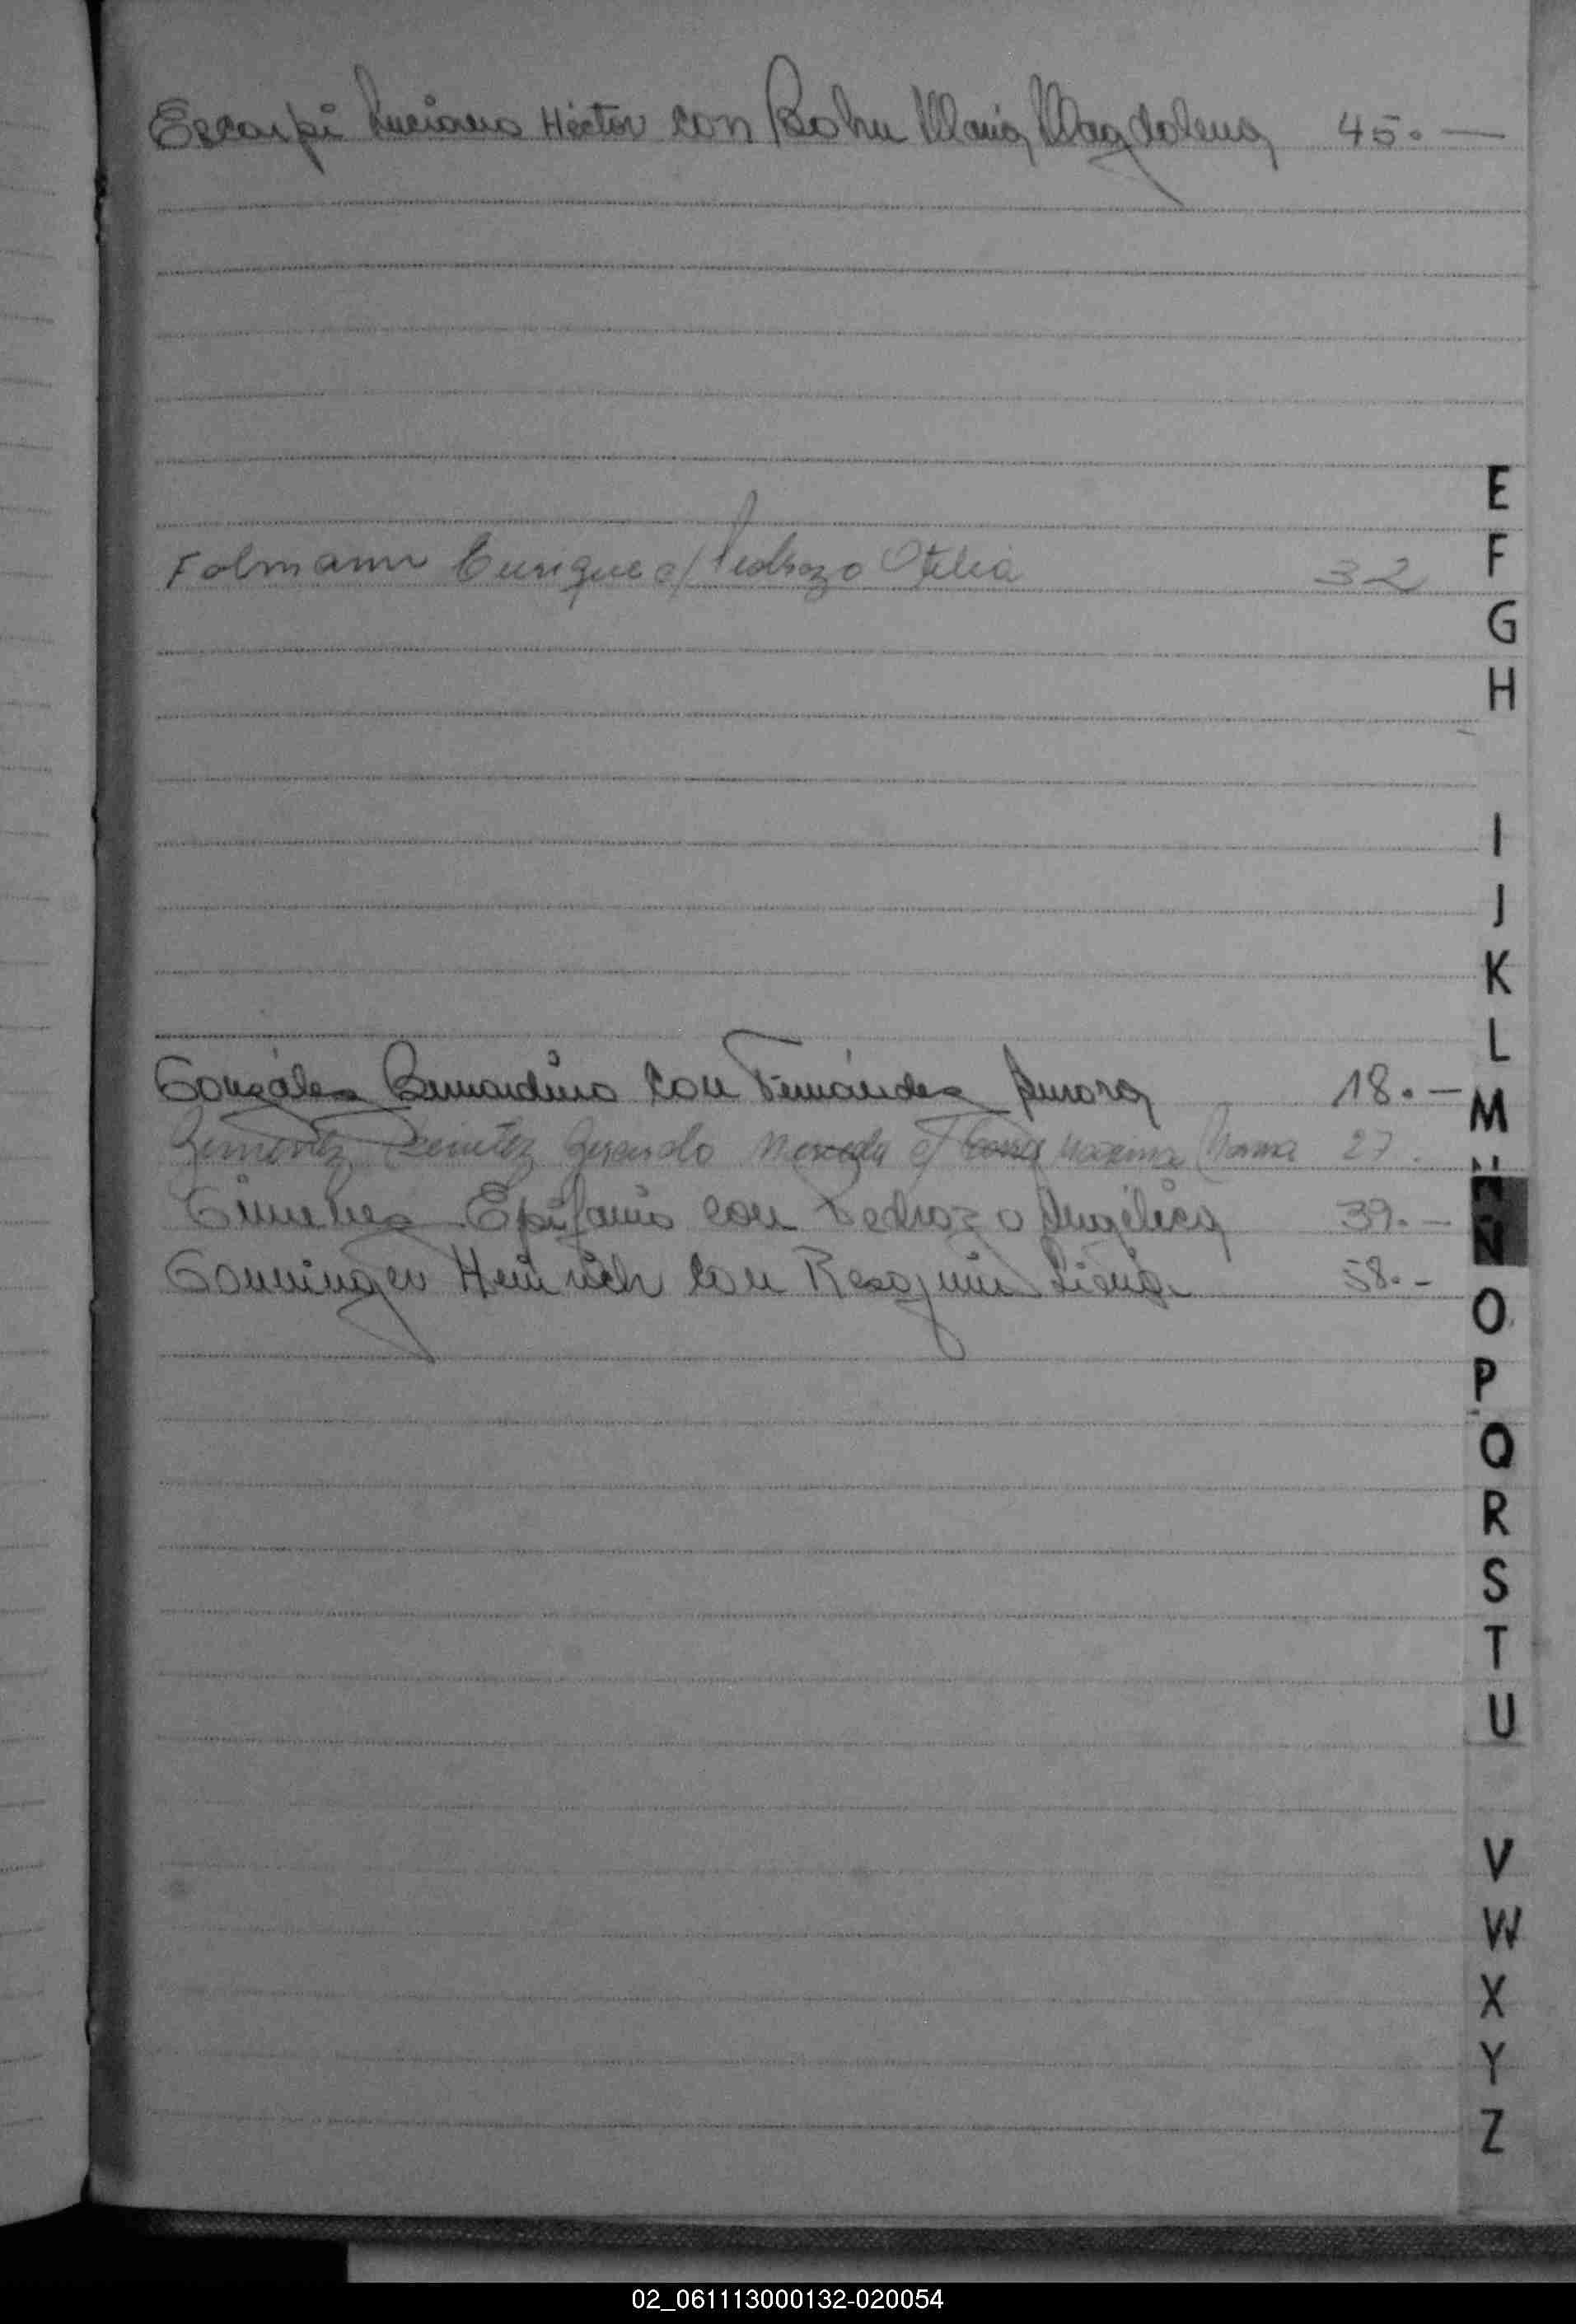 Escarpi Luciano Héctor con Bohn María Magdalena 45.—
E
Folmann Enrique c/ Pedrozo Otelia 32
F
G
H
I
J
K
L
González Bernardino con Fernández Aurora 18.—
M
Benitez Gerardo c/ Maxima 27.
Gimenez Epifanio con Pedrozo Angélica 39.—
N
Gonninger Heinrich con Resquin 58.-
O
P
Q
R
S
T
U
V
W
X
Y
Z
02_061113000132-020054